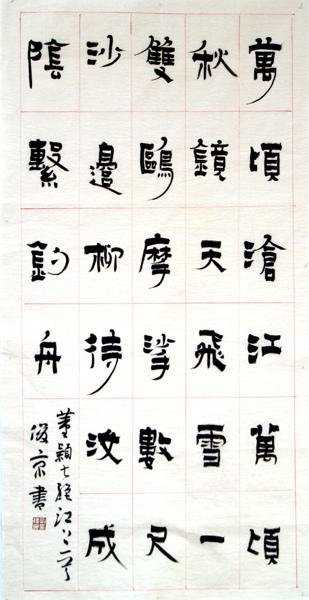 萬頃滄江萬頃
秋鏡天飛雪一
雙鷗摩挲數尺
沙邊柳待汝成
陰繫釣舟
董穎七絕江上一首
俊京書